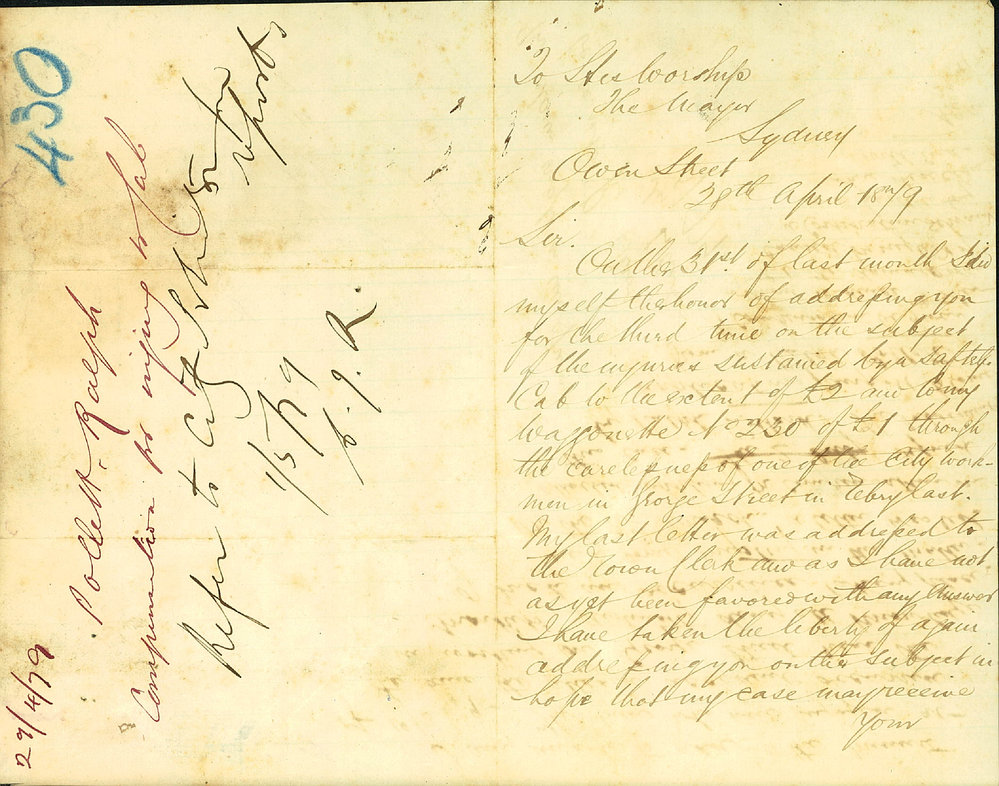 430
29/4/79
Pollett, Ralph
Compensation for injury to Cab
Refer to City
for
report
1/5/79
To His Worship
The Mayor
Sydney
Owen Street
28th April 1879
Sir.
On the 31st. of last month I did
myself the honor of addressing you
for the third time on the subject
of the injuries sustained by a Safety
Cab to the extent of £2 and to my
waggonette No 230 of £1 through
the carelessness of one of the City work-
men in George Street in Febry last.
My last letter was addressed to
the Town Clerk and as I have not
as yet been favored with any answer
I have taken the liberty of again
addressing you on the subject in
hope that my case may receive
Your